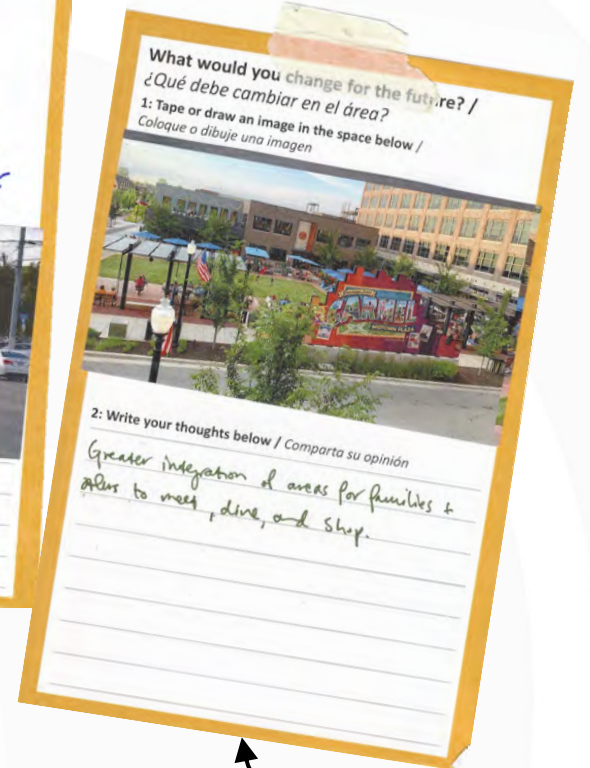 What would you change for the future? /
¿Qué debe cambiar en el área?
1: Tape or draw an image in the space below /
Coloque o dibuje una imagen
CARMEL
MIDTOWN PLAZA
2: Write your thoughts below / Comparta su opinión
Greater integration of areas for families +
to meet, dine, and shop.